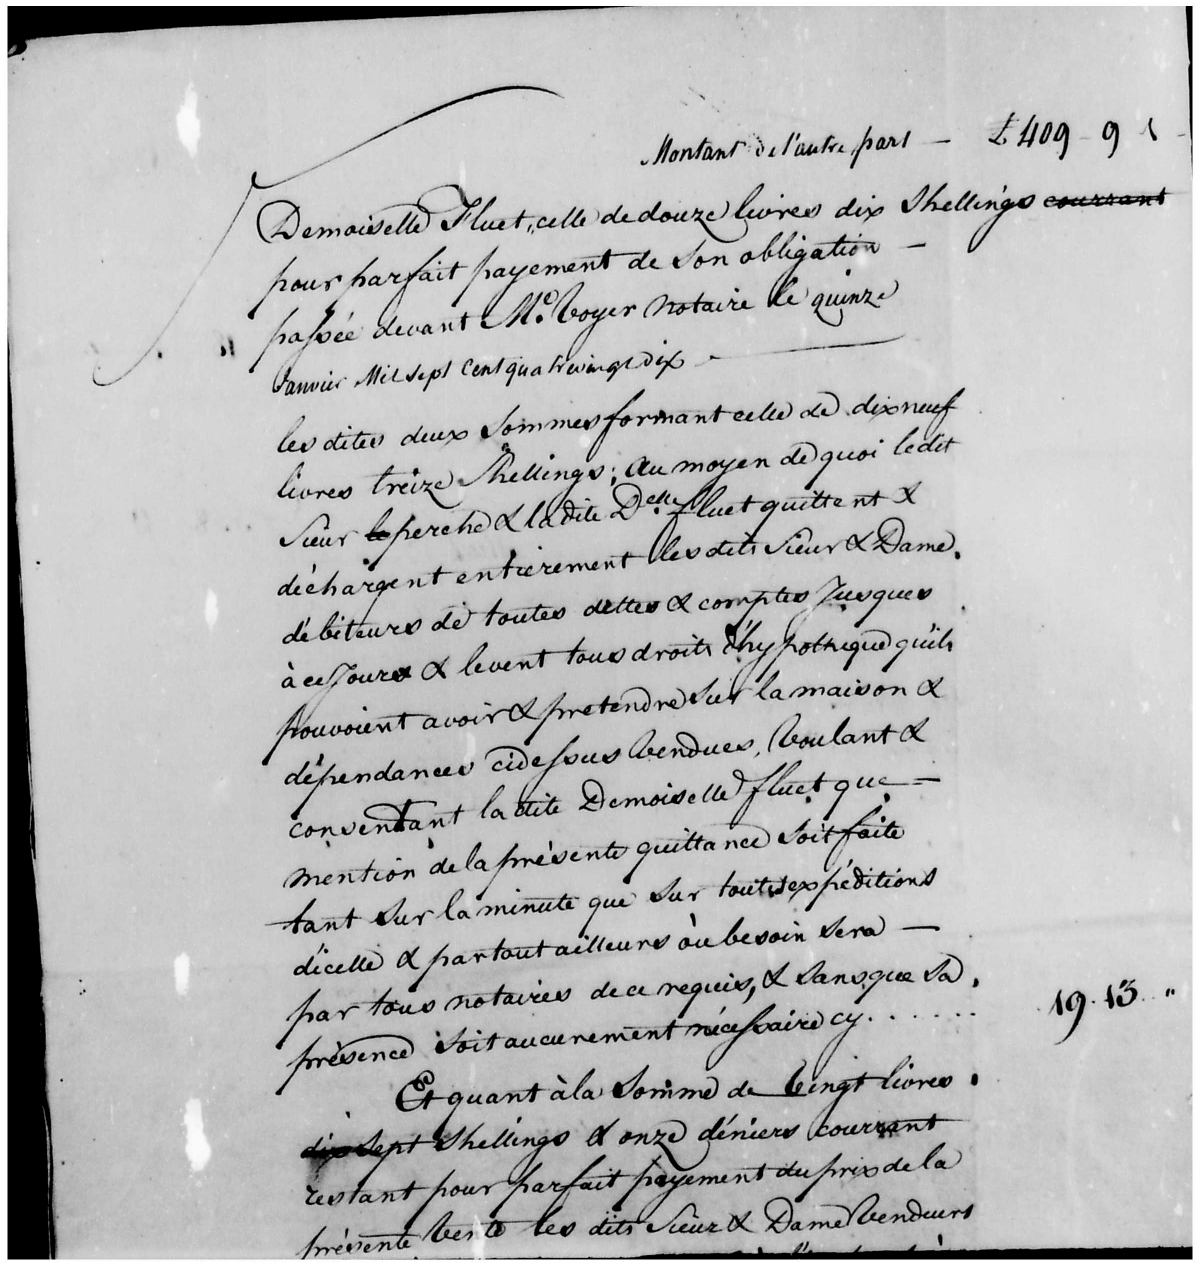 Montant de l'autre part — £ 409 - 9 1
Demoiselle Fluet, celle de douze livres dix Shellings courrant
pour parfait payement de son obligation —
passée devant Me. Voyer Notaire le quinze
Janvier Mil sept Cent quatrevingt dix —
les dites deux Sommes formant celle de dixneuf
livres treize Shellings; au moyen de quoi ledit
Sieur leperche & ladite Delle. fluet quittent &
déchargent entierement les dits Sieur & Dame
débiteurs de toutes dettes & comptes Jusques
à ce Jour & levent tous droits d'hypotheque qu'ils
pouvoient avoir & pretendre Sur la maison &
dépendances cidessus Vendues, Voulant &
consentant la dite Demoiselle fluet que —
mention de la présente quittance Soit faite
tant Sur la minute que Sur toutes expéditions
d'icelle & partout ailleurs où besoin Sera —
par tous notaires de ce requis, & Sans que Sa
présence Soit aucunement nécessaire cy . . . . . . 19. 13. "
Et quant à la Somme de Vingt livres
dix Sept Shellings & onze déniers courrant
restant pour parfait payement du prix de la
présente Vente les dits Sieur & Dame Vendeurs